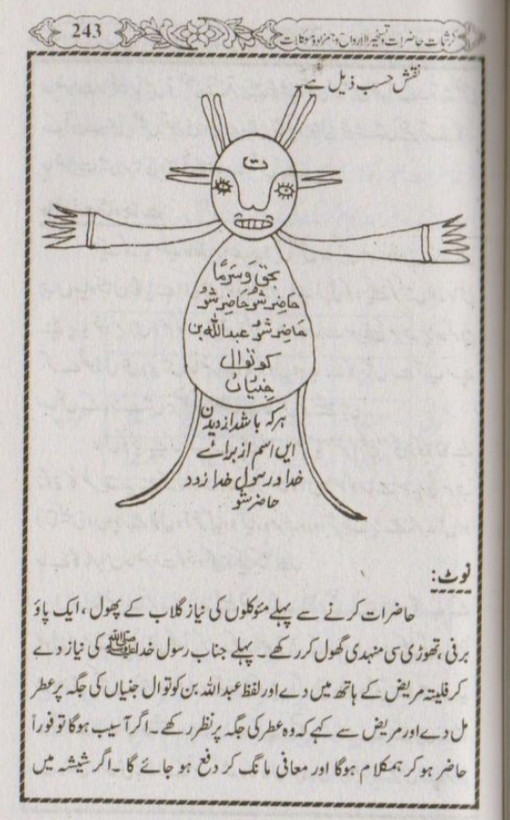 243
کرشمات حاضرات تسخیر الارواح و ہمزاد و موکلات
نقش حسب ذیل ہے۔
بحق و سرما
حاضر شو حاضر شو
حاضر شو عبداللہ بن
کوتوال
جنیاں
ہر کہ باشد از دیدن
ایں اسم از برائے
خدا و رسول خدا زدد
حاضر شو
نوٹ:
حاضرات کرنے سے پہلے مئوکلوں کی نیاز گلاب کے پھول، ایک پاؤ
برفی، تھوڑی سی منہدی گھول کر رکھے۔ پہلے جناب رسول خدا ﷺ کی نیاز دے
کر فلیتہ مریض کے ہاتھ میں دے اور لفظ عبداللہ بن کوتوال جنیاں کی جگہ پر عطر
مل دے اور مریض سے کہے کہ وہ عطر کی جگہ پر نظر رکھے۔ اگر آسیب ہوگا تو فوراً
حاضر ہو کر ہمکلام ہوگا اور معافی مانگ کر دفع ہو جائے گا۔ اگر شیشہ میں